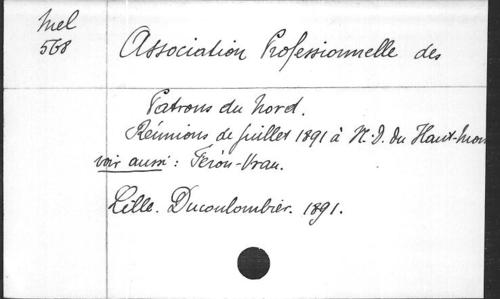 Mel
568
Association Professionnelle des
Patrons du Nord.
Réunions de juillet 1891 à N.D. du Haut-Mon
voir aussi : Féron-Vrau.
Lille. Ducoulombier. 1891.